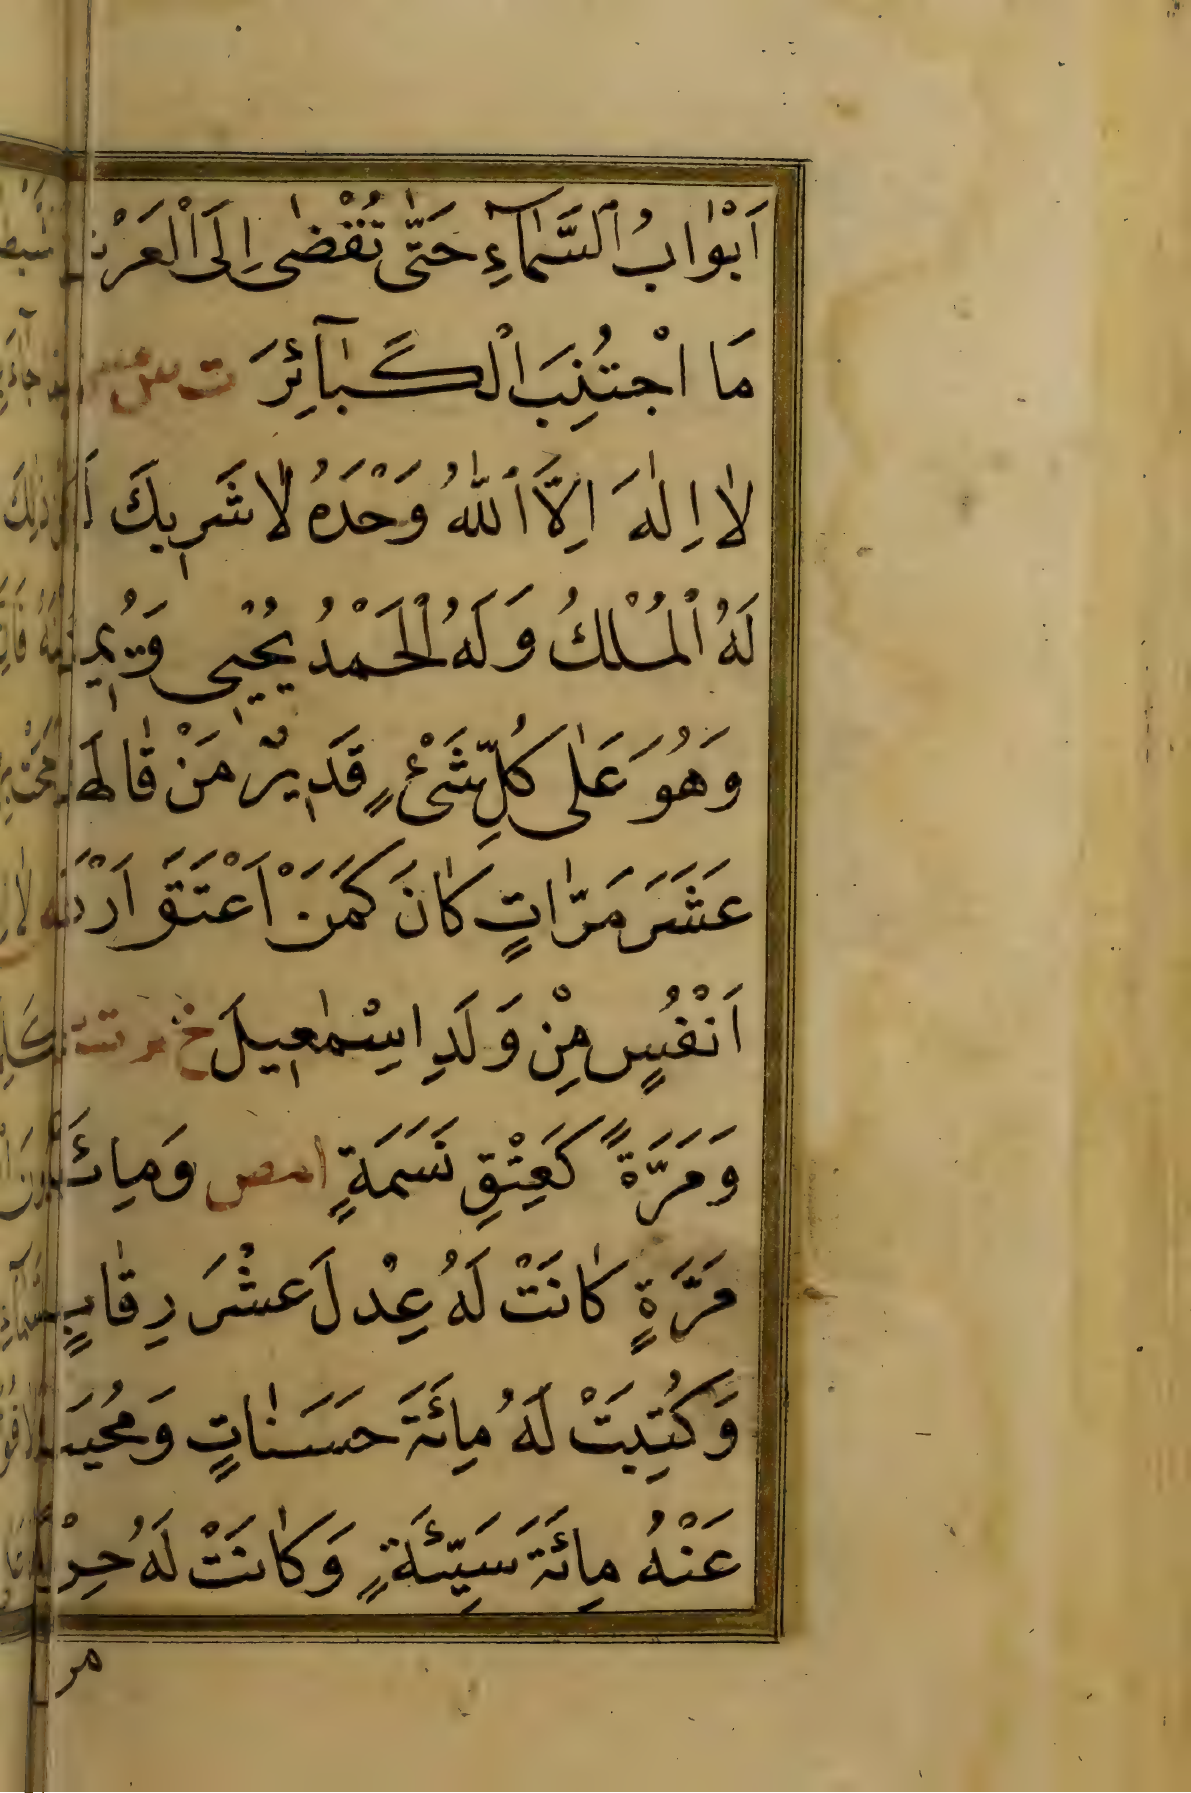 اَبْوٰابُ ٱلسَّمٰآءِ حَتّٰى تُفْضٰى اِلَى ٱلْعَرْ
مَا اجْتُنِبَ الْكَبٰآئِرَ ت س
لٰا اِلٰهَ اِلَّا ٱللّٰهُ وَحْدَهُ لٰا شَرِيكَ
لَهُ ٱلْمُلْكُ وَلَهُ ٱلْحَمْدُ يُحْيِى وَيُمِ
وَهُوَ عَلٰى كُلِّ شَىْءٍ قَدِيرٌ مَنْ قٰالَهٰ
عَشَرَ مَرّٰاتٍ كٰانَ كَمَنْ اَعْتَقَ اَرْ
اَنْفُسٍ مِنْ وَلَدِ اِسْمٰعِيلَ خ م ت
وَمَرَّةً كَعِتْقِ نَسَمَةٍ ا مص وَمِائَ
مَرَّةٍ كٰانَتْ لَهُ عِدْلَ عَشْرَ رِقٰابٍ
وَكُتِبَتْ لَهُ مِائَةَ حَسَنٰاتٍ وَمُحِيَ
عَنْهُ مِائَةَ سَيِّئَةٍ وَكٰانَتْ لَهُ حِرْ